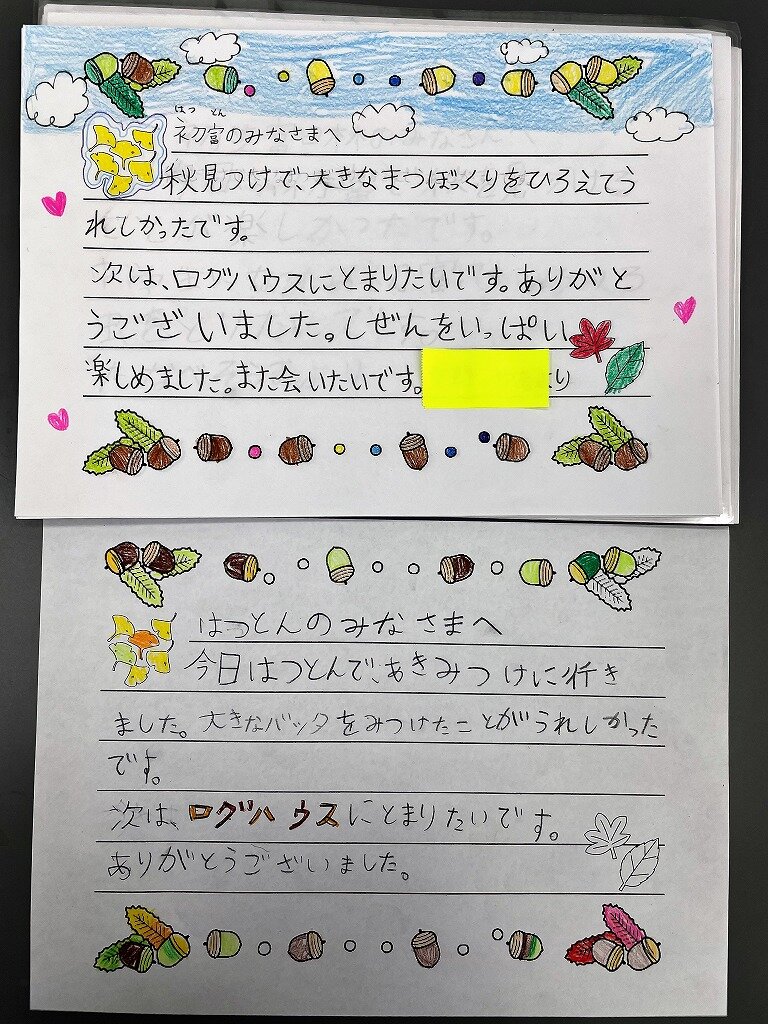 はつ とん
初富のみなさまへ
秋見つけで、大きなまつぼっくりをひろえてう
れしかったです。
次は、ログハウスにとまりたいです。ありがと
うございました。しぜんをいっぱい
楽しめました。また会いたいです。 より
はつとんのみなさまへ
今日はつとんで、あきみつけに行き
ました。大きなバッタをみつけたことがうれしかった
です。
次は、ログハウスにとまりたいです。
ありがとうございました。